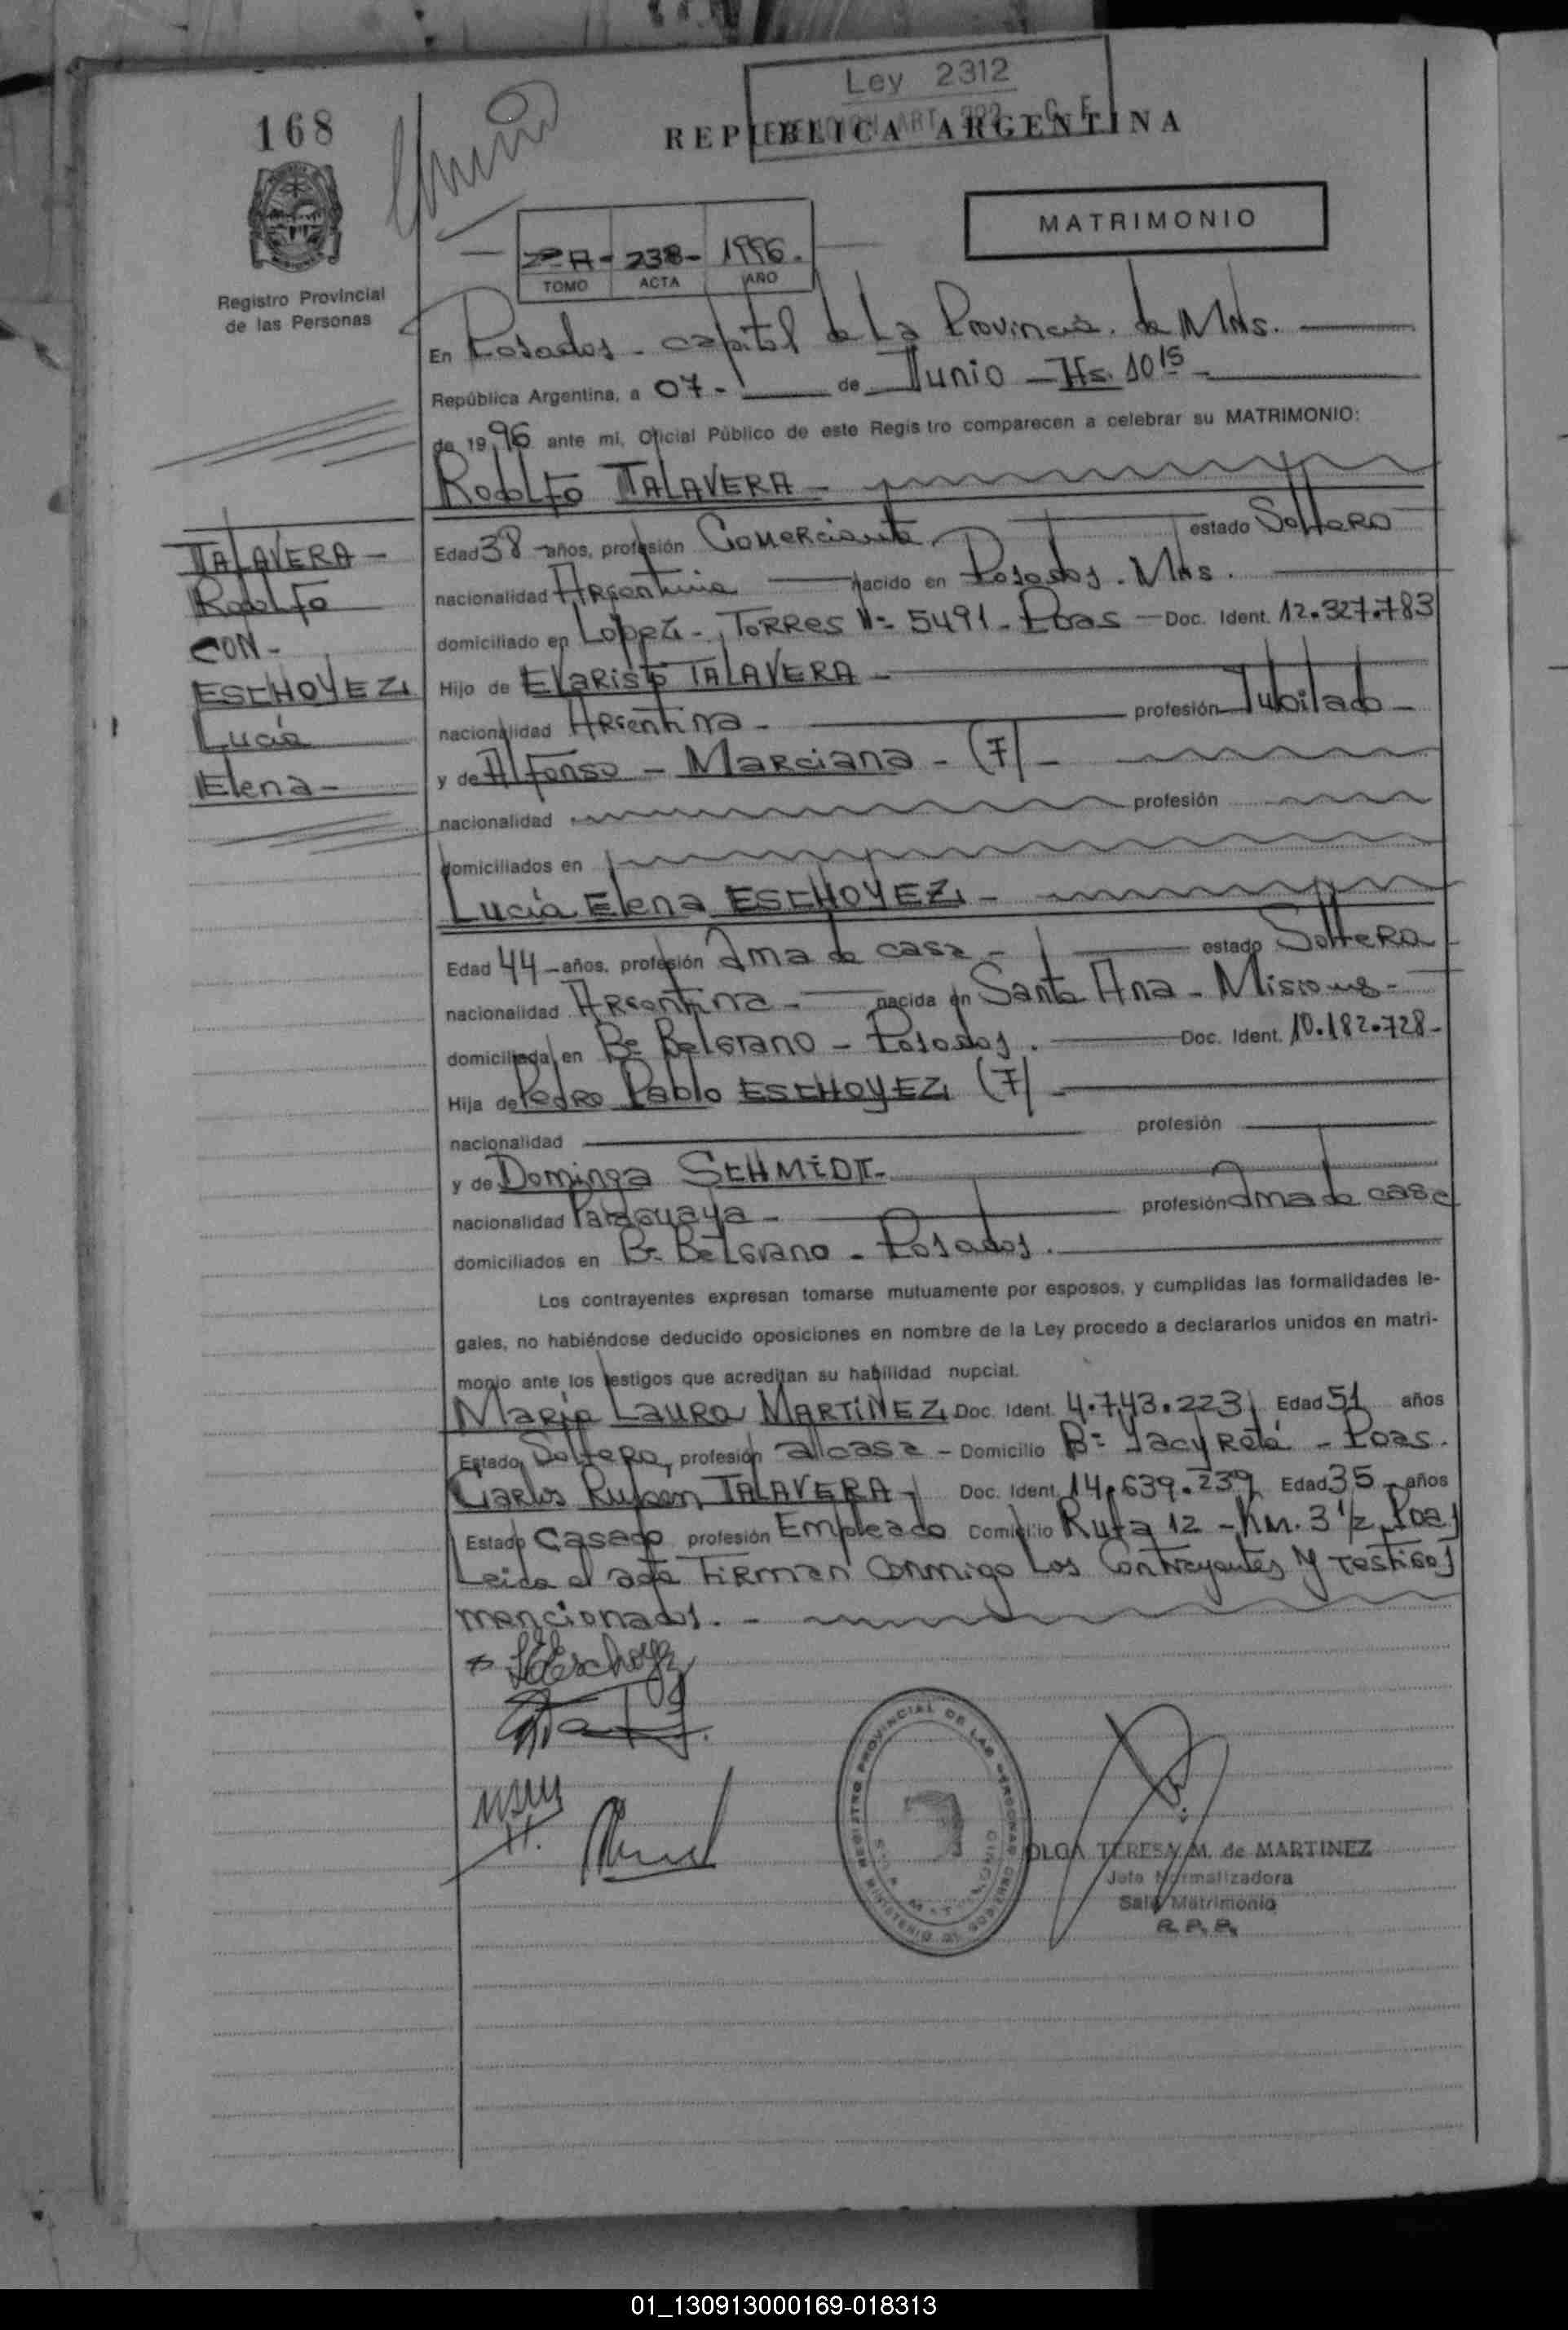 Ley 2312
168
REPUBLICA ARGENTINA
MATRIMONIO
2º A - 238 - 1996.
TOMO ACTA AÑO
Registro Provincial
de las Personas
En Posadas - capital de La Provincia. de Mns.
República Argentina, a 07 - de Junio - Hs. 10 15 -
de 19 96 ante mi, Oficial Público de este Registro comparecen a celebrar su MATRIMONIO:
Rodolfo TALAVERA -
TALAVERA -
Rodolfo
CON -
ESCHOYEZ
Lucía
Elena -
Edad 38 - años, profesión Comerciante estado Soltero
nacionalidad Argentina nacido en Posadas. Mns.
domiciliado en Lopez - Torres Nº 5491 - Pdas - Doc. Ident. 12.327.783
Hijo de Evaristo TALAVERA -
nacionalidad Argentina - profesión Jubilado -
y de Alfonso - Marciana - (F) -
nacionalidad profesión
domiciliados en
Lucía Elena ESCHOYEZ -
Edad 44 - años, profesión Ama de casa - estado Soltera
nacionalidad Argentina - nacida en Santa Ana - Misiones -
domiciliada en Bº Belgrano - Posadas. Doc. Ident. 10.182.728 -
Hija de Pedro Pablo ESCHOYEZ (F) -
nacionalidad profesión
y de Dominga SCHMIDT -
nacionalidad Paraguaya - profesión Ama de casa
domiciliados en Bº Belgrano - Posadas.
Los contrayentes expresan tomarse mutuamente por esposos, y cumplidas las formalidades le-
gales, no habiéndose deducido oposiciones en nombre de la Ley procedo a declararlos unidos en matri-
monio ante los testigos que acreditan su habilidad nupcial.
María Laura MARTINEZ Doc. Ident. 4.743.223 Edad 51 años
Estado Soltera, profesión a/casa - Domicilio Bº Yacyretá - Pdas.
Carlos Ruben TALAVERA - Doc. Ident. 14.639.239 Edad 35 - años
Estado Casado profesión Empleado Domicilio Ruta 12 - Km. 3 1/2 Pdas
Leida el acta Firman Conmigo Los Contrayentes y Testigos
mencionados. -
REGISTRO PROVINCIAL DE LAS PERSONAS
OLGA TERESA M. de MARTINEZ
Jefa Normalizadora
Sala Matrimonio
R. P. P.
01_130913000169-018313